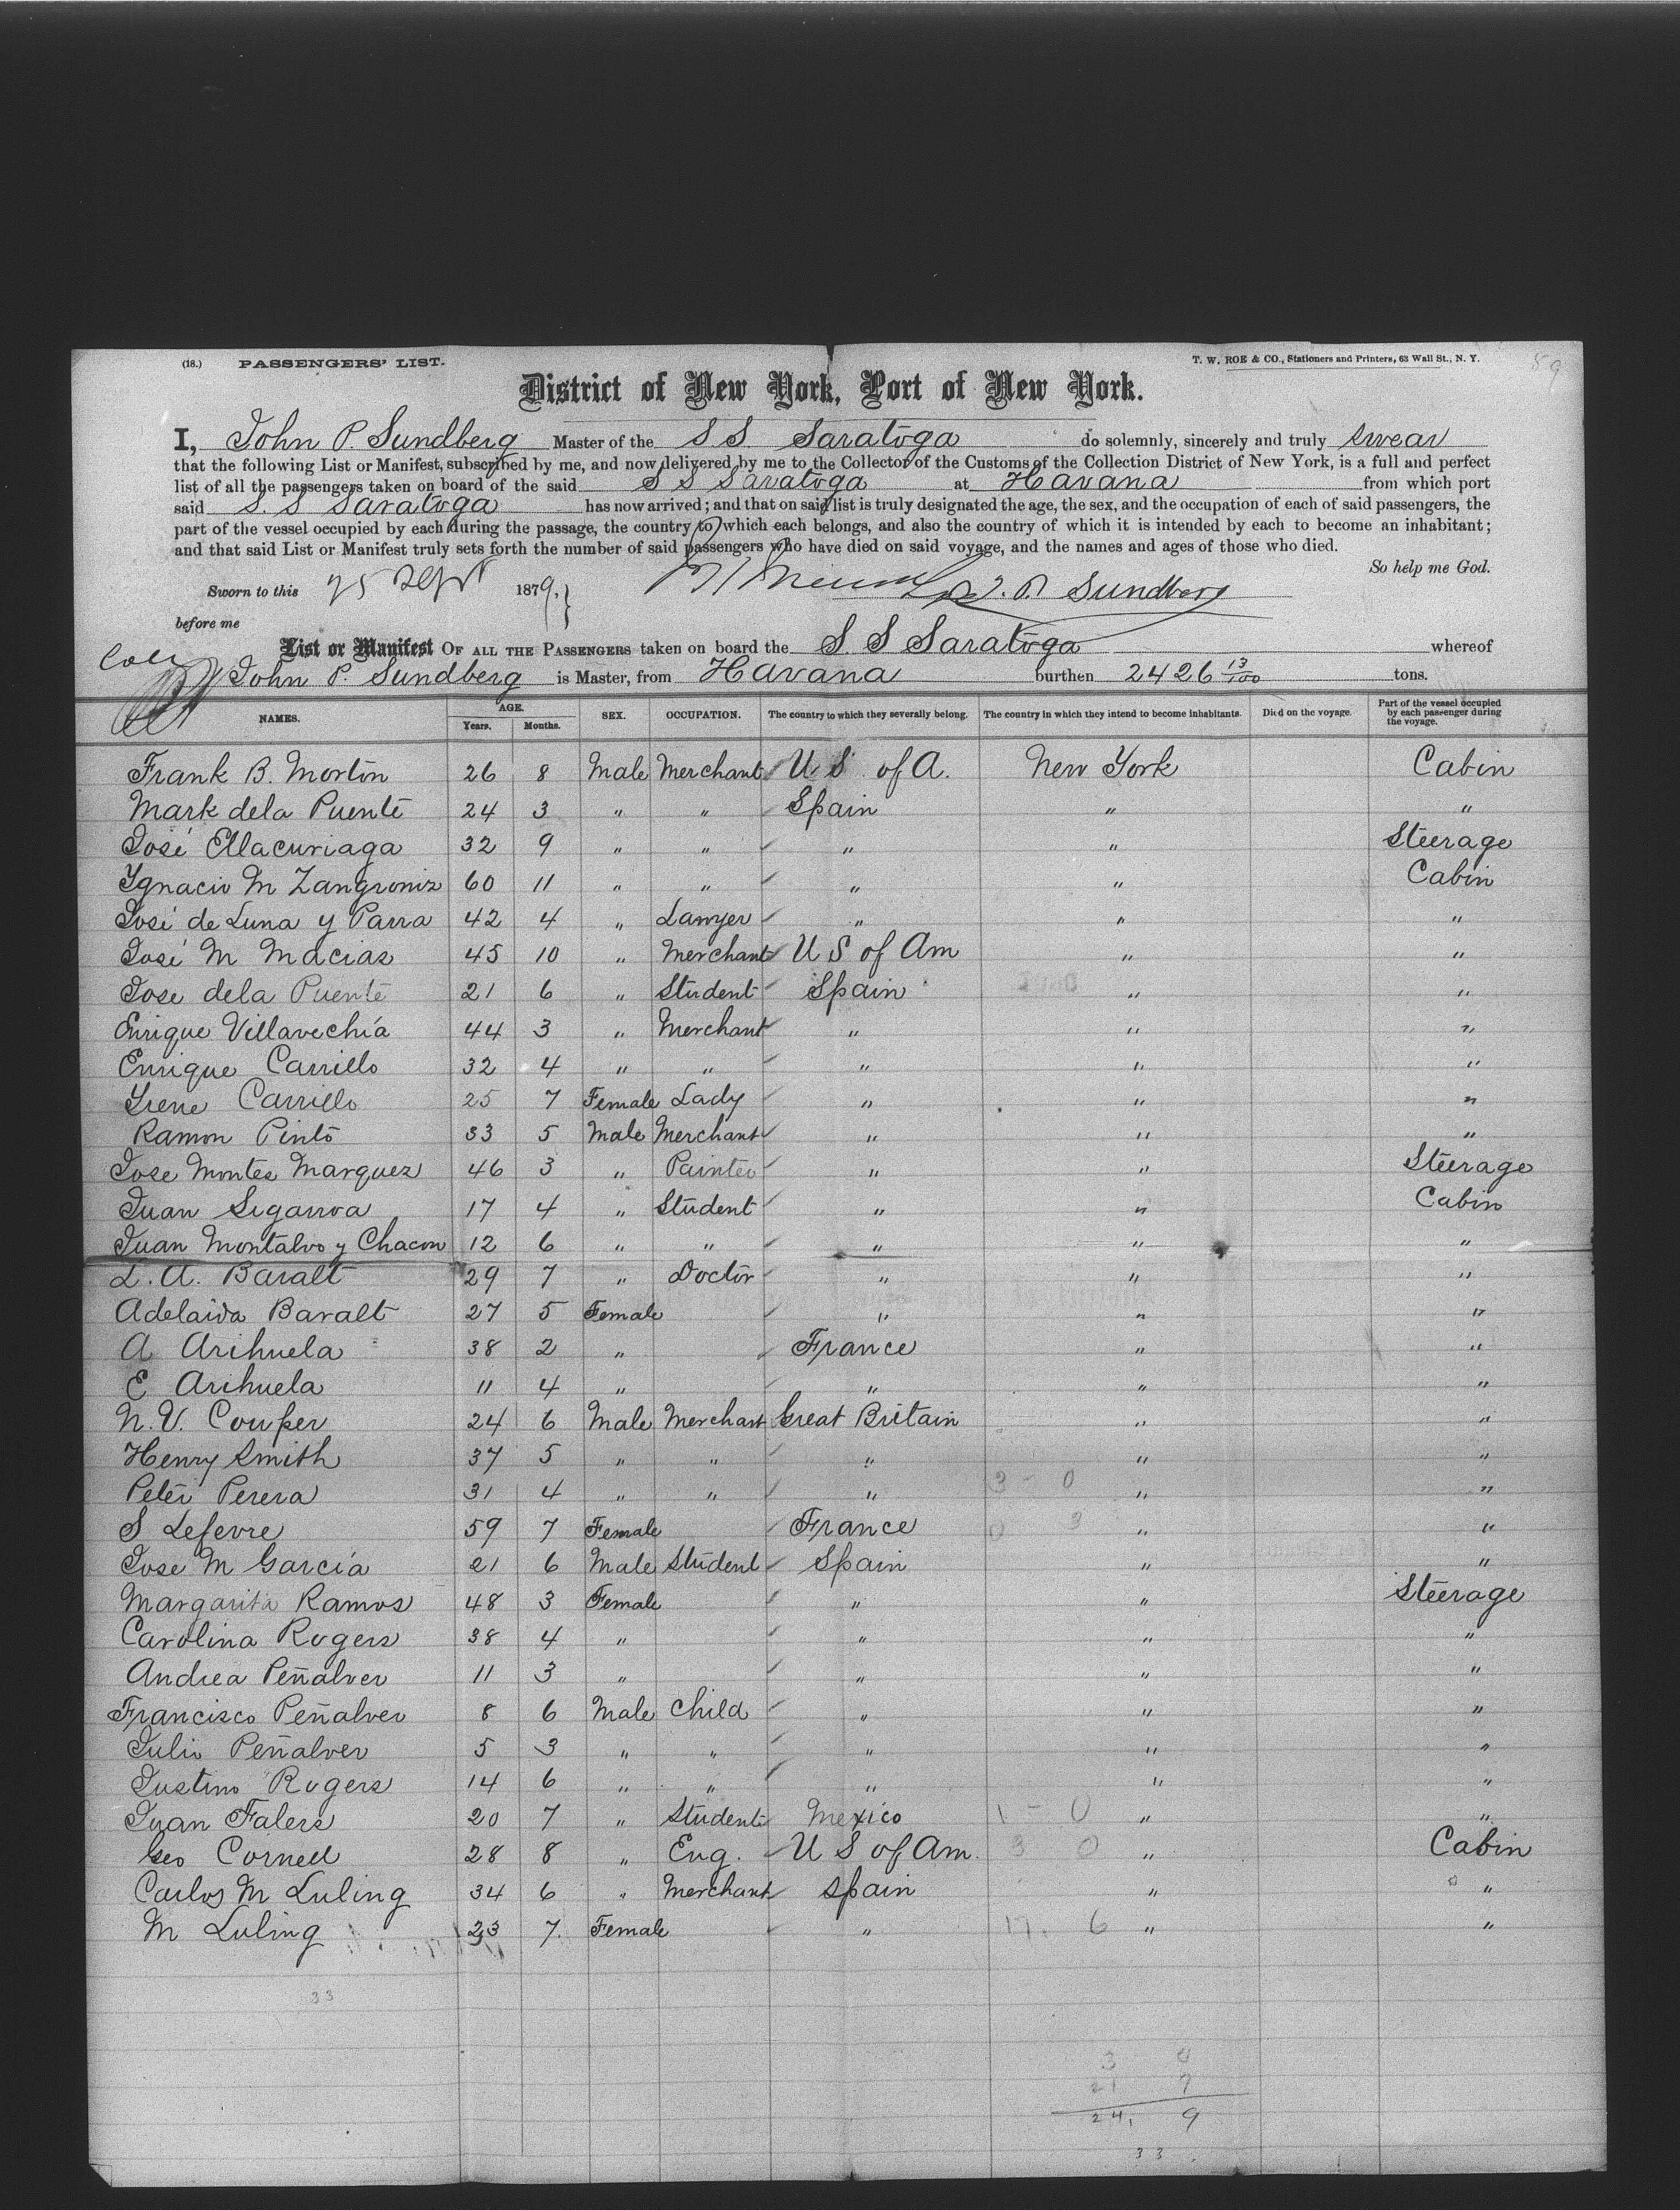 (18.) PASSENGERS' LIST. T. W. ROE & CO., Stationers and Printers, 63 Wall St., N. Y. 59
District of New York, Port of New York.
I, John P. Sundberg Master of the S S Saratoga do solemnly, sincerely and truly swear
that the following List or Manifest, subscribed by me, and now delivered by me to the Collector of the Customs of the Collection District of New York, is a full and perfect
list of all the passengers taken on board of the said S S Saratoga at Havana from which port
said S. S Saratoga has now arrived; and that on said list is truly designated the age, the sex, and the occupation of each of said passengers, the
part of the vessel occupied by each during the passage, the country to which each belongs, and also the country of which it is intended by each to become an inhabitant;
and that said List or Manifest truly sets forth the number of said passengers who have died on said voyage, and the names and ages of those who died.
So help me God.
Sworn to this 25 Sept 1879, J. P. Sundberg
before me
List or Manifest OF ALL THE PASSENGERS taken on board the S. S Saratoga whereof
John P. Sundberg is Master, from Havana burthen 2426 13/100 tons.
NAMES. AGE. Years. Months. SEX. OCCUPATION. The country to which they severally belong. The country in which they intend to become inhabitants. Died on the voyage. Part of the vessel occupied by each passenger during the voyage.
Frank B. Mortin 26 8 Male Merchant U S of A. New York Cabin
Mark dela Puente 24 3 " " Spain " "
José Ellacuriaga 32 9 " " " " Steerage
Ygnacio M Zangroniz 60 11 " " " " Cabin
José de Luna y Parra 42 4 " Lawyer " " "
José M Macias 45 10 " Merchant U S of Am " "
Jose dela Puente 21 6 " Student Spain " "
Enrique Villavechia 44 3 " Merchant " " "
Enrique Carrillo 32 4 " " " " "
Yrene Carrillo 25 7 Female Lady " " "
Ramon Pinto 33 5 Male Merchant " " "
Jose Montes Marquez 46 3 " Painter " " Steerage
Juan Sigarroa 17 4 " Student " " Cabin
Juan Montalvo y Chacon 12 6 " " " " "
L. A. Baralt 29 7 " Doctor " " "
Adelaida Baralt 27 5 Female " " "
A Arihuela 38 2 " France " "
E Arihuela 11 4 " " " "
N. V. Couper 24 6 Male Merchant Great Britain " "
Henry Smith 37 5 " " " " "
Peter Perera 31 4 " " " 3 - 0 " "
S Lefevre 59 7 Female France 0 3 " "
Jose M Garcia 21 6 Male Student Spain " "
Margarita Ramos 48 3 Female " " Steerage
Carolina Rogers 38 4 " " " "
Andrea Peñalver 11 3 " " " "
Francisco Peñalver 8 6 Male Child " " "
Julio Peñalver 5 3 " " " " "
Justino Rogers 14 6 " " " " "
Juan Falers 20 7 " Student Mexico 1 - 0 " "
Geo Cornell 28 8 " Eng. U S of Am. 3 0 " Cabin
Carlos M Luling 34 6 " Merchant Spain " "
M Luling 23 7. Female " 17. 6 " "
33
3
21 7
24, 9
33